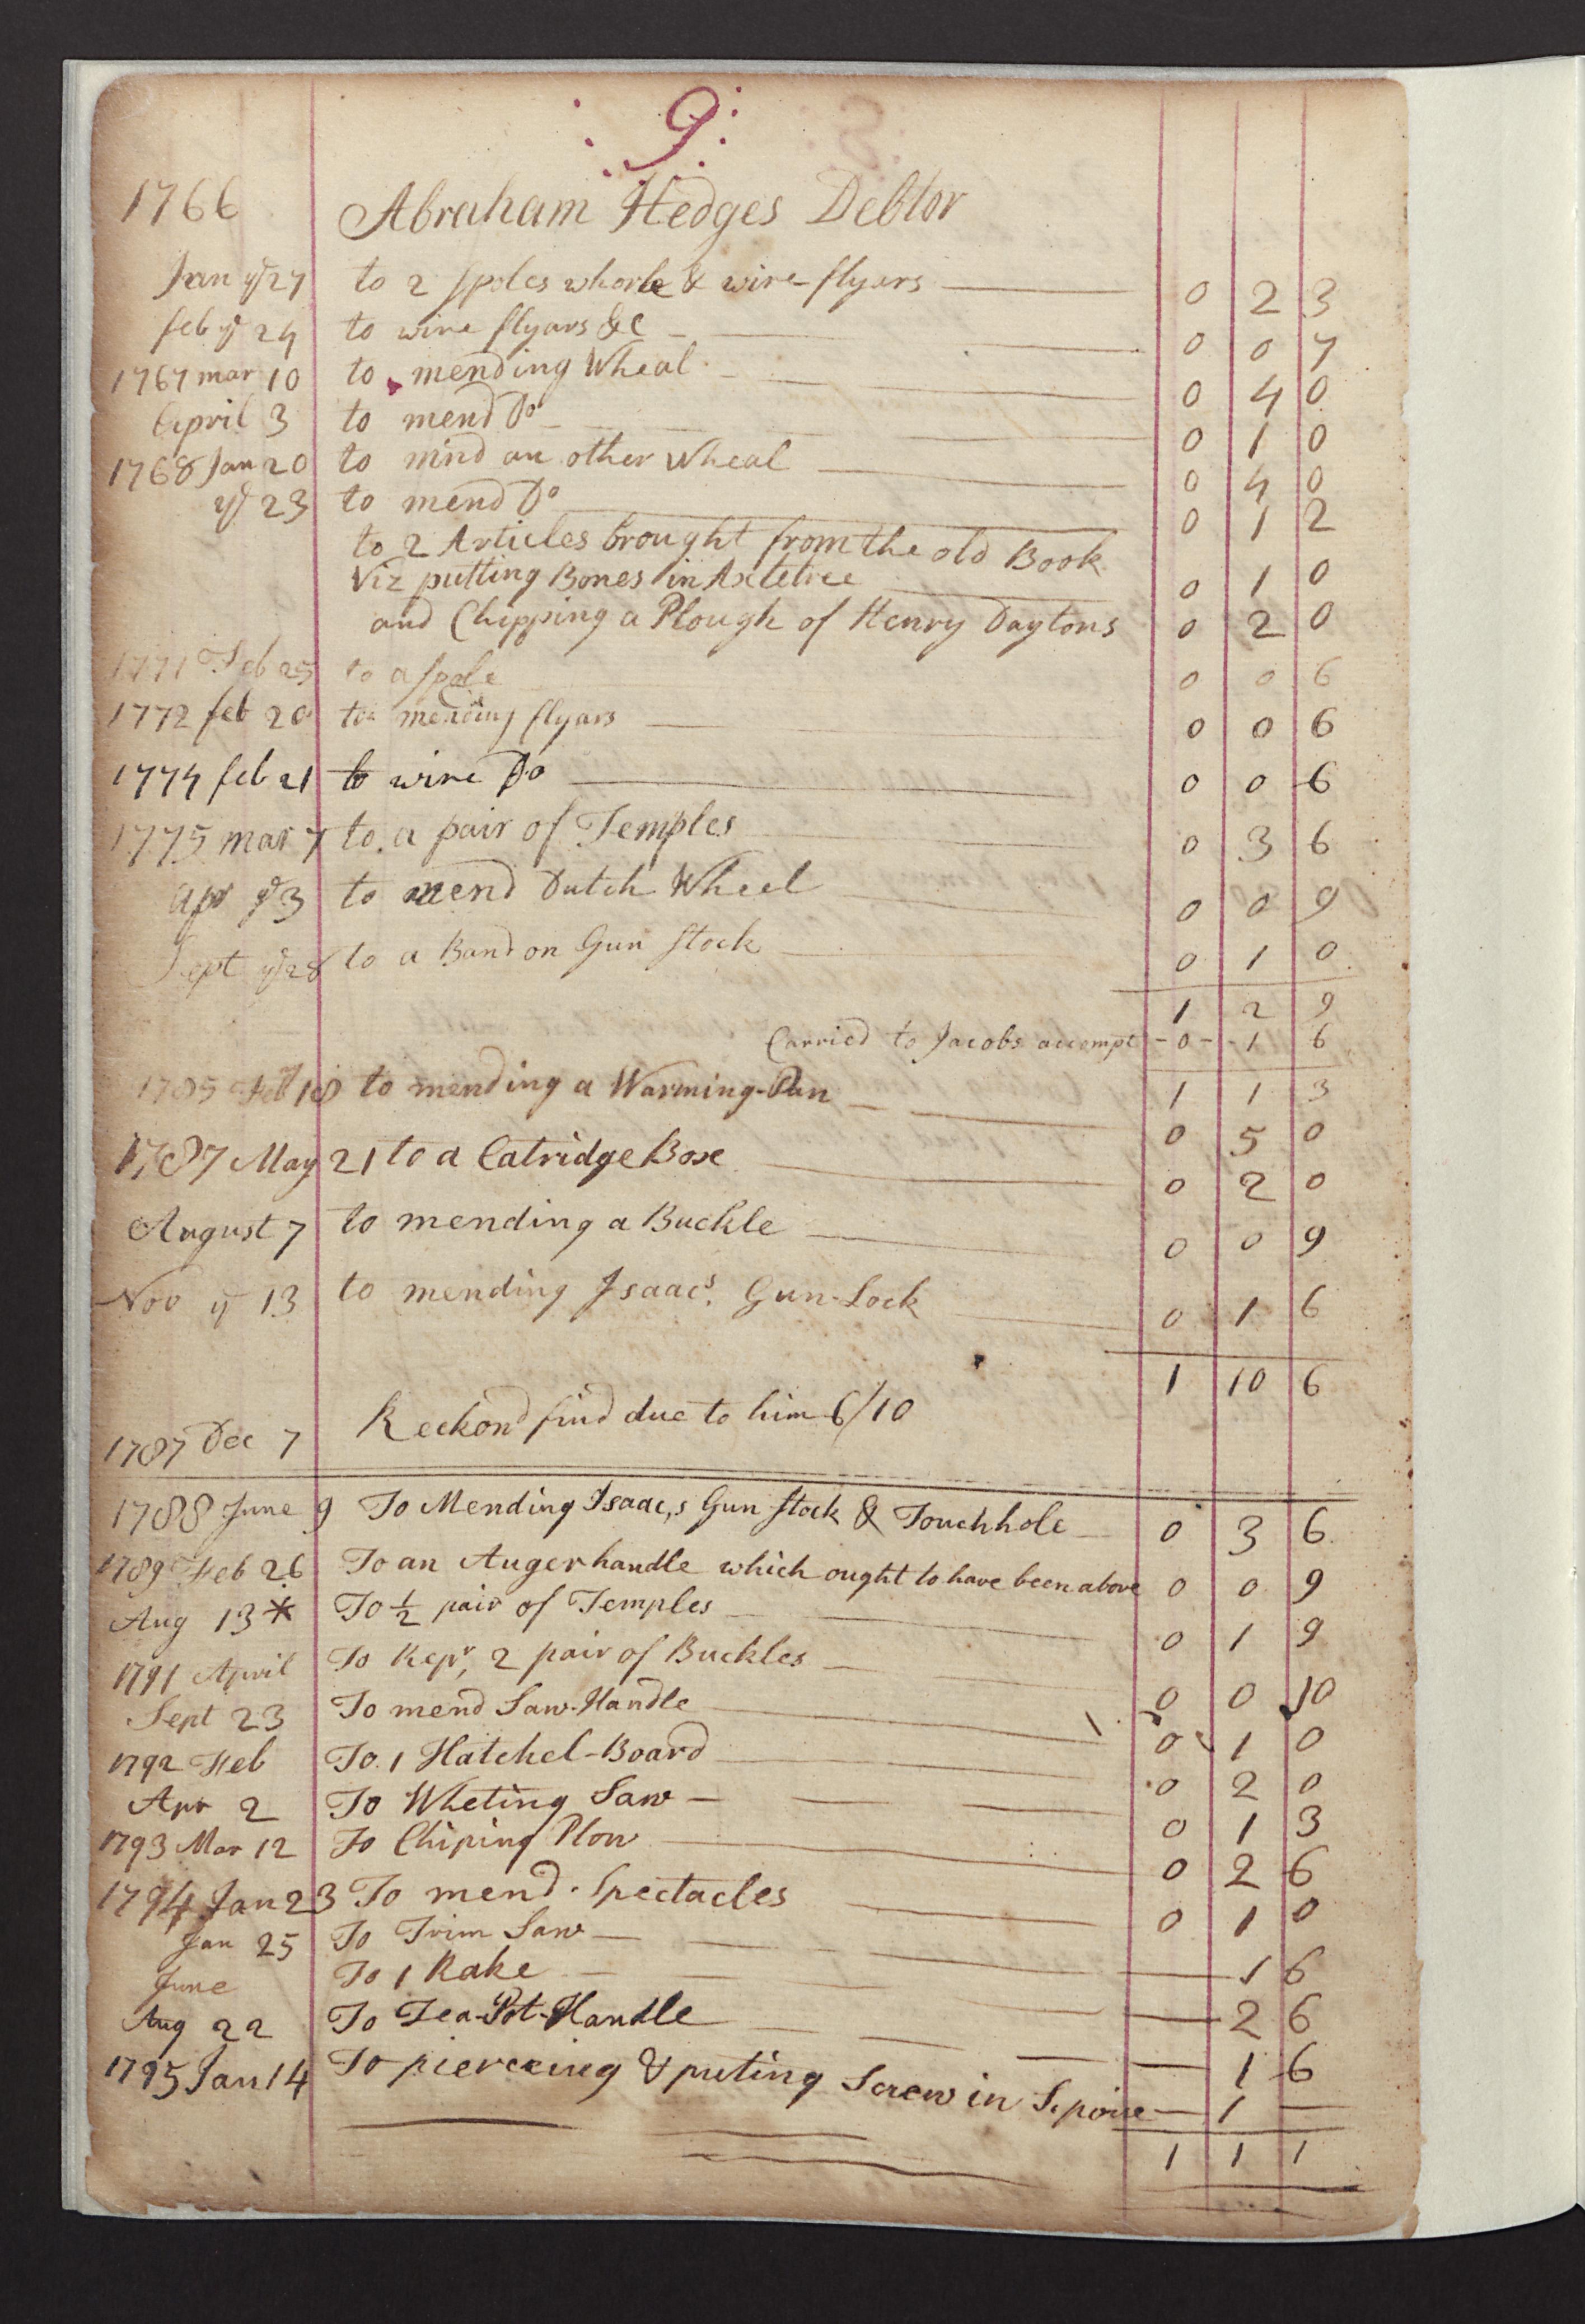 9
1766 Abraham Hedges Debtor
Jan ye 27 to 2 spoles whorle & wire flyers 0 2 3
feb ye 24 to wire flyars &c 0 0 7
1767 mar 10 to mending Wheal 0 4 0
April 3 to mend Do 0 1 0
1768 Jan 20 to mind an other Wheal 0 4 0
ye 23 to mend Do 0 1 2
to 2 Articles brought from the old Book
Viz putting Bones in Axletree 0 1 0
and Chipping a Plough of Henry Daytons 0 2 0
1771 Feb 25 to a spole 0 0 6
1772 feb 20 to mending flyars 0 0 6
1774 feb 21 to wire Do 0 0 6
1775 mar 7 to a pair of Temples 0 3 6
apr ye 3 to mend Dutch Wheel 0 0 9
Sept ye 28 to a Band on Gun Stock 0 1 0
1 2 9
Carried to Jacobs accompt - 0 - - 1 6
1 1 3
1785 Feb 18 to mending a Warming-Pan 0 5 0
1787 May 21 to a Catridge Box 0 2 0
August 7 to mending a Buckle 0 0 9
Nov ye 13 to mending Isaacs Gun-Lock 0 1 6
1 10 6
1787 Dec 7 Reckond find due to him 6/10
1788 June 9 To Mending Isaac,s Gun Stock & Touchhole 0 3 6
1789 Feb 26 To an Auger handle which ought to have been above 0 0 9
Aug 13 * To ½ pair of Temples 0 1 9
1791 April To Repr, 2 pair of Buckles 0 0 10
Sept 23 To mend Saw-Handle 0 1 0
1792 Feb To 1 Hatchel-Board 0 2 0
Apr 2 To Wheting Saw 0 1 3
1793 Mar 12 To Chiping Plow 0 2 6
1794 Jan 23 To mend Spectacles 0 1 0
Jan 25 To Trim Saw 1 6
June To 1 Rake 2 6
Aug 22 To Tea-Pot-Handle 1 6
1795 Jan 14 To pierceing & puting Screw in 1
1 1 1